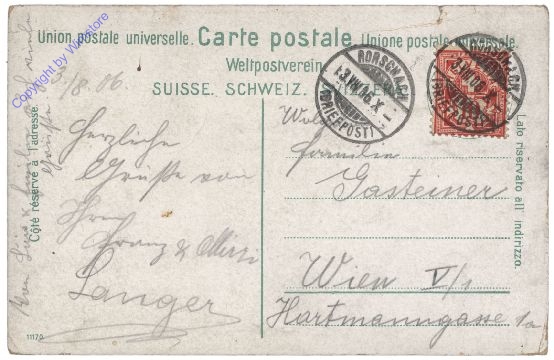 Union postale universelle. Carte postale. Unione postale universale.
Weltpostverein.
SUISSE. SCHWEIZ. SVIZZERA.
Côté réservé à l'adresse.
Lato riservato all' indirizzo.
Copyright by Wnstore
RORSCHACH
13.VIII.06.X
(BRIEFPOST)
13/8.06
Herzliche
Grüße von
Ihren
Franz & Mizzi
Langer
Familie
Gasteiner
Wien V/1
Hartmanngasse 1a
11170